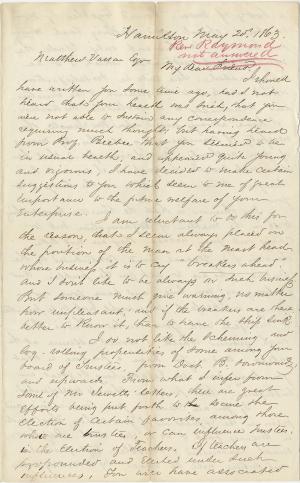 Hamilton May 25th, 1863
Rev Raymond
not answered
Matthew Vassar Esq
My dear friend,
I should
have written you some time ago, had I not
heard that your health was such, that you
were not able to sustain any correspondence
requiring much thought; but having heard
from Prof. Beebee that you seemed to be
in usual health, and appeared quite young
and vigorous, I have decided to make certain
suggestions to you which seem to me of great
importance to the future welfare of your
Enterprise.
I am reluctant to do this, for
the reason, that I seem always placed in
the position of the man at the mast head
whose business it is to cry "breakers ahead"
and I don't like to be always on such business
But someone must give warning, no matter
how unpleasant, and if the breakers are there
better to know it, than to have the ship sink
I do not like the scheming and
log-rolling propensities of some among your
board of Trustees, from Doct. B. downwards
and upwards. From what I infer from
some of Mr Jewett's letters, there are great
efforts being put forth to secure the
election of certain favorites, among those
who are trustees, or can influence trustees
in the election of Teachers. If teachers are
propounded and elected under such
influences, you will have associated